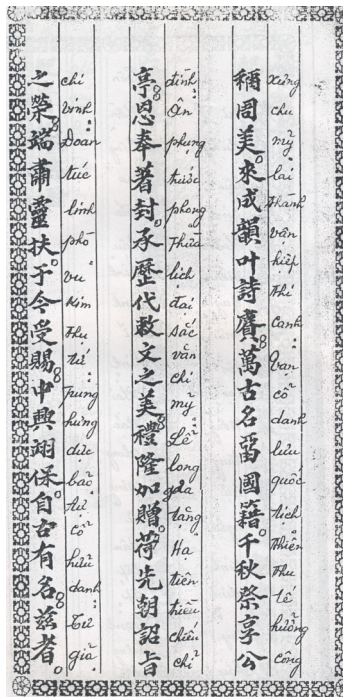 稱周美來成韻叶詩賡萬古名畱國籍千秋祭享公
xưng chu mỹ lai Thành vận hiệp Thi Canh vạn cổ danh lưu quốc tịch Thiên Thu tế hưởng công
亭恩奉著封承歷代敕文之美禮隆加贈荷先朝詔旨
đình Ân phụng trước phong Thừa lịch đại sắc văn chi mỹ Lễ long gia tăng Hạ tiên triều chiếu chỉ
之榮端肅靈扶于今受賜中興翊保自古有名茲者
chi vinh Đoan túc linh phò vu kim thu tứ Trung hưng dực bảo tự cổ hữu danh Tư giả